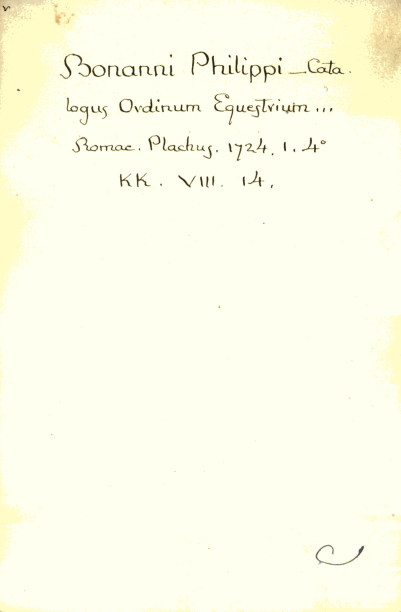 Bonanni Philippi - Cata.
logus Ordinum Equestrium ...
Romae. Plachus. 1724. 1. 4°
KK. VIII. 14.